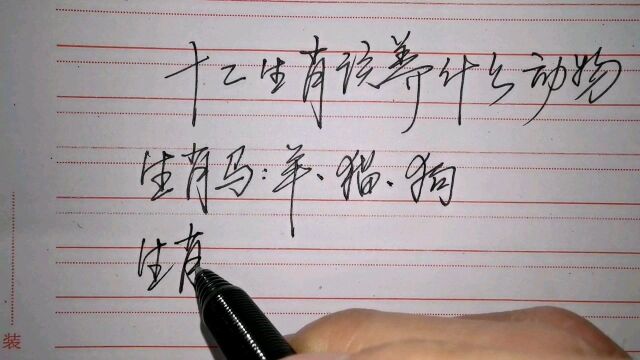 十二生肖该养什么动物
生肖马:羊、猫、狗
生肖
装